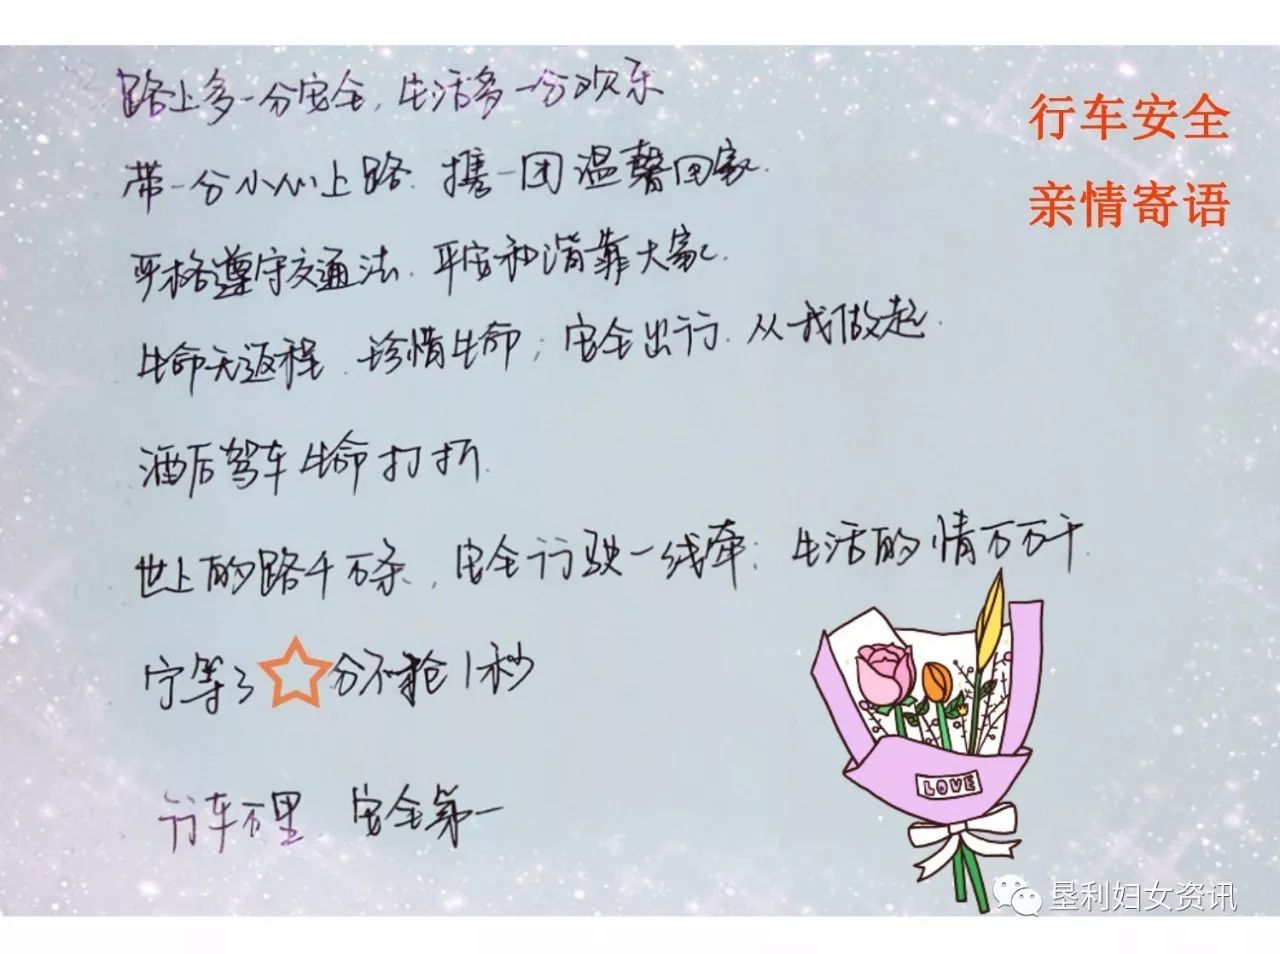 路上多一分安全,生活多一分欢乐
行车安全
亲情寄语
带一分小心上路.携一团温馨回家.
严格遵守交通法.平安和谐靠大家.
生命无返程.珍惜生命;安全出行.从我做起.
酒后驾车生命打折.
世上的路千万条,安全行驶一线牵;生活的情万万千.
宁等3分不抢1秒
行车万里.安全第一
LOVE
垦利妇女资讯